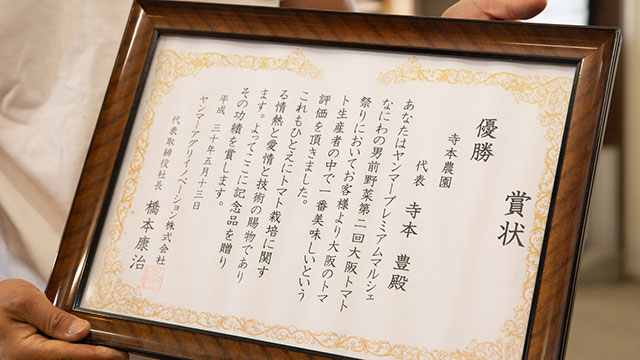 賞状
優勝
寺本農園
代表 寺本 豊殿
あなたはヤンマープレミアムマルシェ
なにわの男前野菜第二回大阪トマト
祭りにおいてお客様より大阪のトマ
ト生産者の中で一番美味しいという
評価を頂きました。
これもひとえにトマト栽培に関す
る情熱と愛情と技術の賜物であり
ます。よってここに記念品を贈り
その功績を賞します。
平成 三十年五月十三日
ヤンマーアグリイノベーション株式会社
代表取締役社長 橋本康治